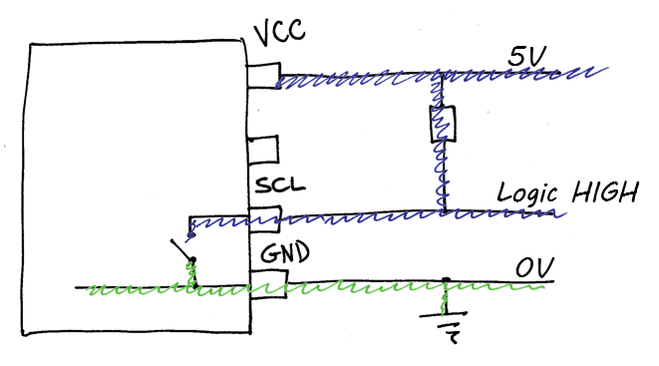 VCC
5V
SCL
Logic HIGH
GND
0V